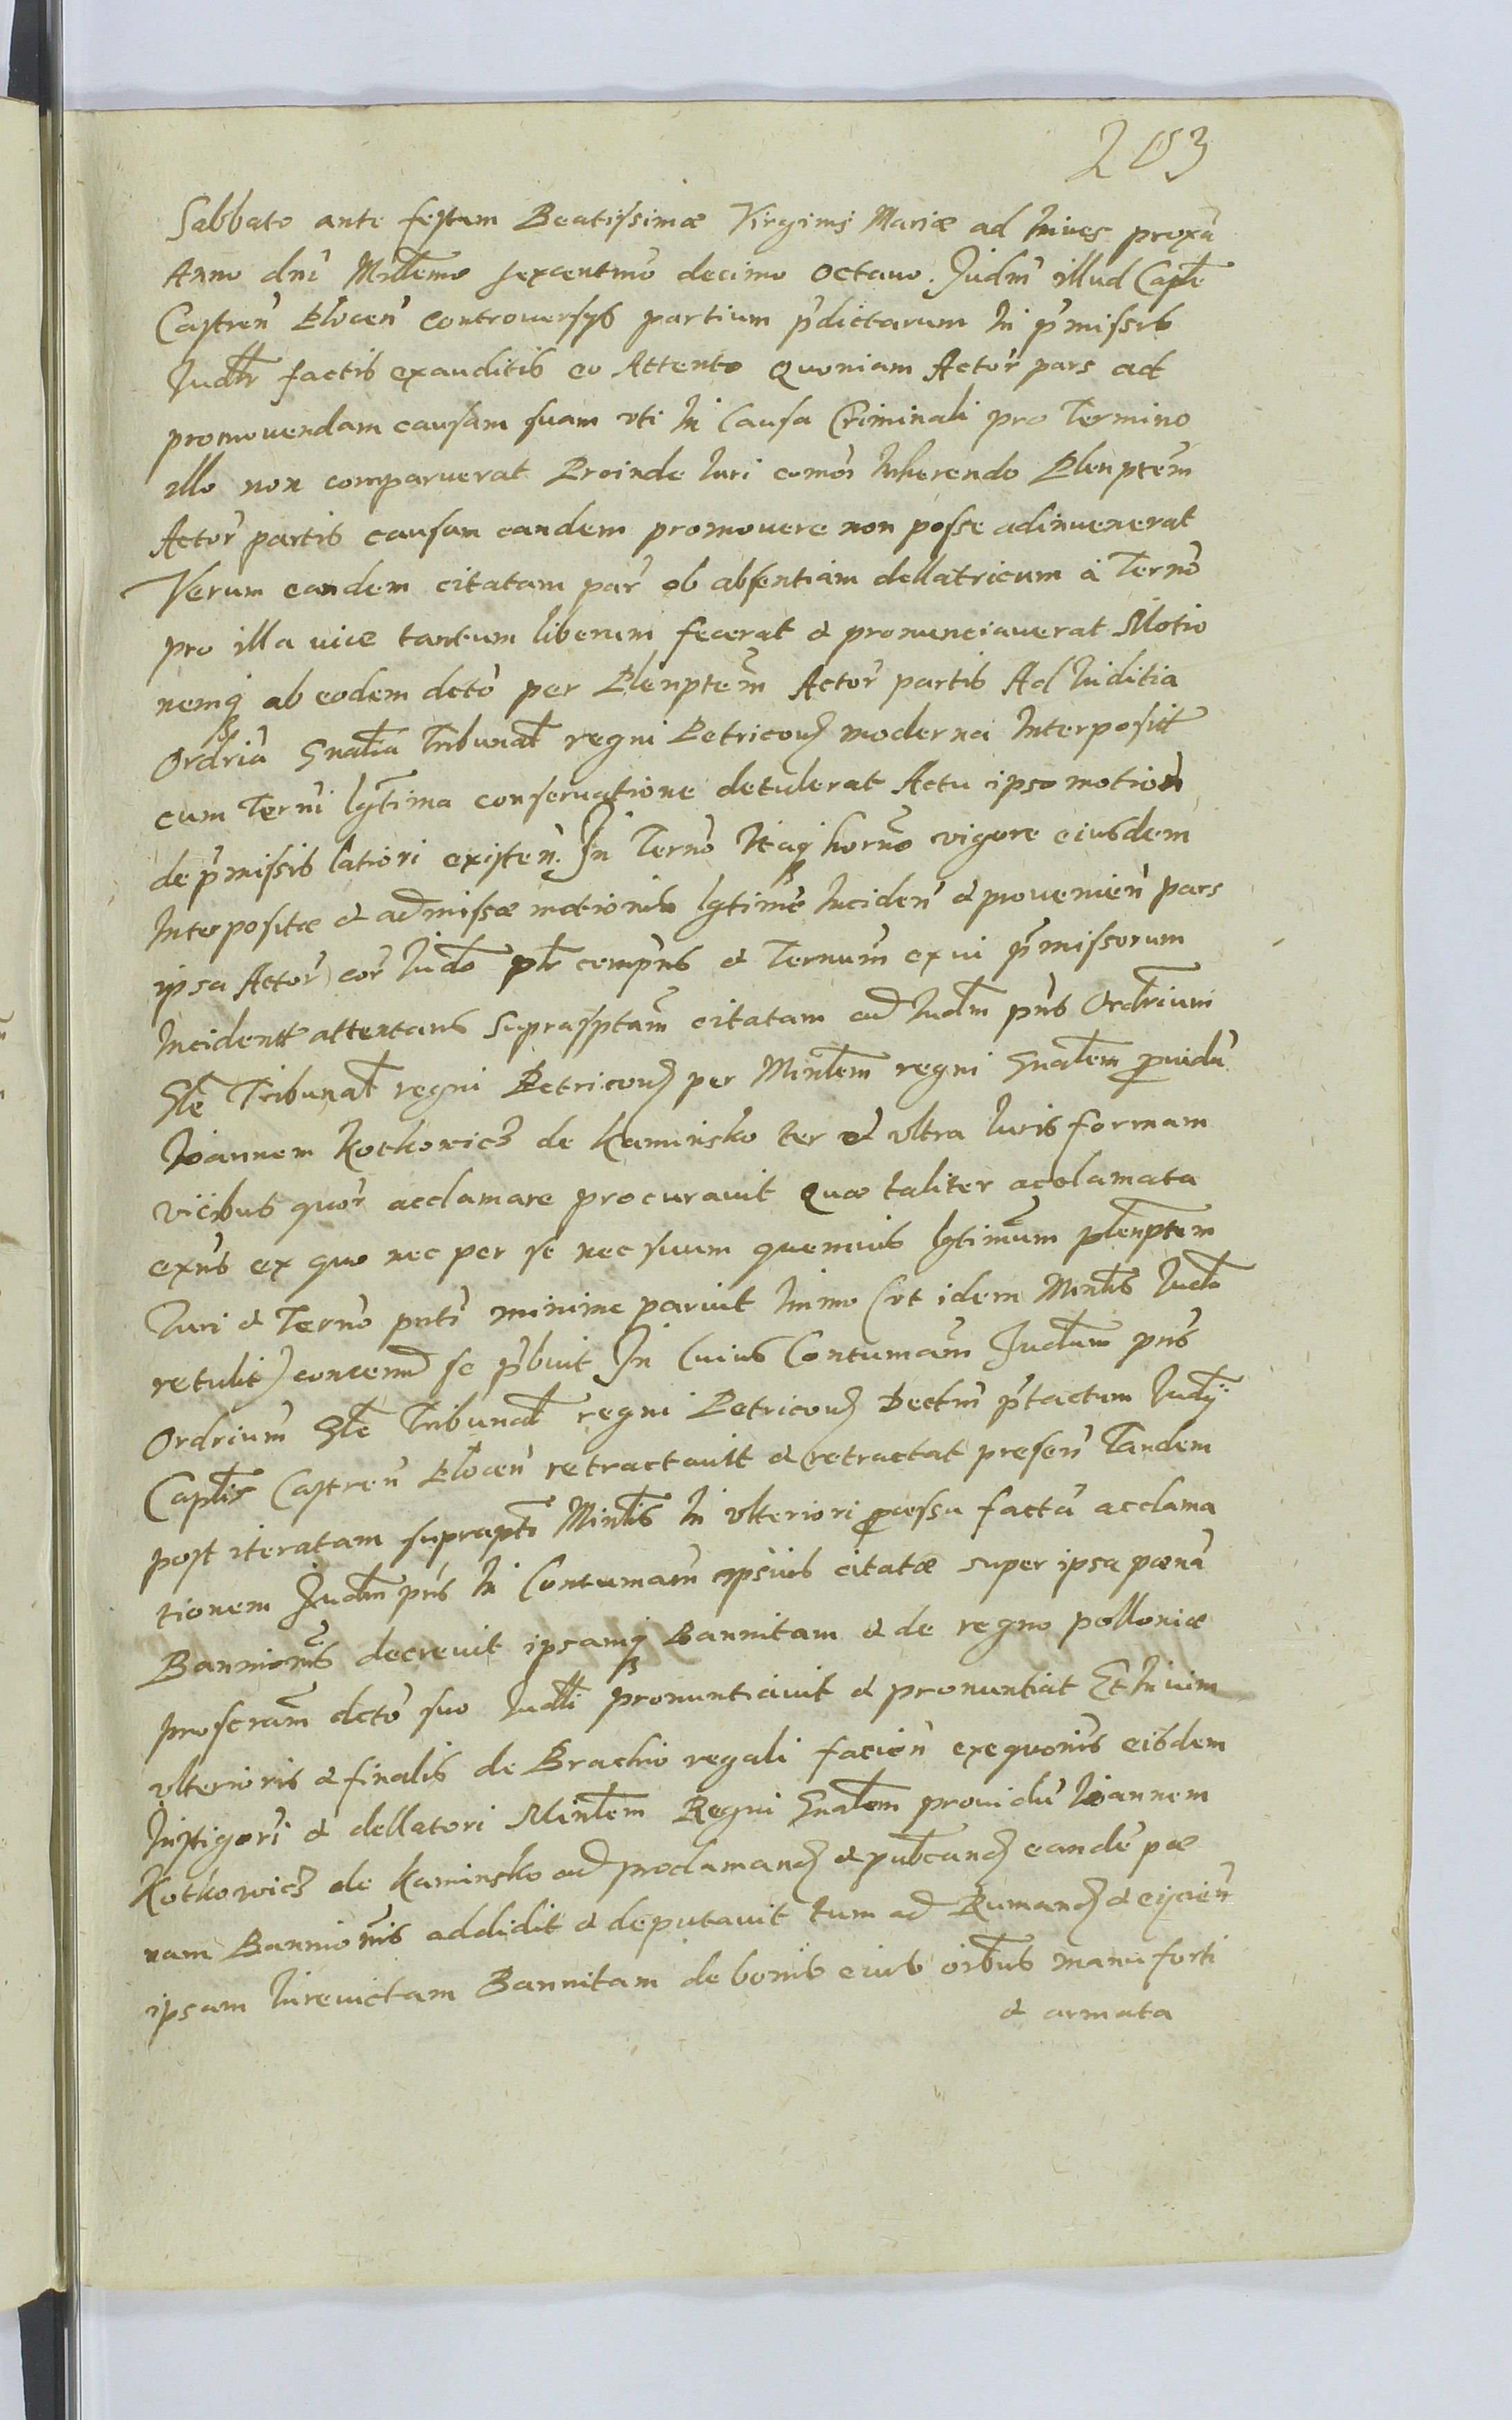 203
Sabbato ante festum Beatissimæ Virginis Mariæ ad Niues proxã
Anno dni Millemo sexcentmo decimo octauo. Judm̃ illud Caplē
Castreñ Plocen̄ controuersys partium p̃dictarum In p̃missis
Iudłr factis exauditis eo Attento Quoniam Actor̃ pars ad
promouendam causam suam vti In Causa Criminali pro Termino
illo non comparuerat Proinde Iuri comõi Inherendo Plenptem̃
Actor̃ partis causam eandem promouere non posse adinuenerat
Verum eandem citatam par̃ ob absentiam dellatricum à Terño
pro illa uice tantum liberam fecerat & pronunciauerat Motio
nemq ab eodem dcto per Plenptem̃ Actor̃ partis Ad Iuditia
Ordria Gnalia Tribunał regni Petricou moderna Interposit
cum Terni lgtima conseruatione detulerat Actu ipso motioñ
de p̃missis latiori existen̄. In Terño Itaq horño vigore eiusdem
Interpositæ & admissæ motionis lgtime Inciden̄ & prouenien̄ pars
ipsa Actor̃ cor̃ Iudo płr comp̃ns & Ternum ex ui p̃missorum
Incident attentans suprasptam̃ citatam ad Iudm p̃ns Ordrium
Gle Tribunał regni Petricou per Minlem regni Gnalem prouidũ
Ioannem Kotkowicz de Kaminsko ter & vltra Iuris formam
vicibus quor̃ acclamare procurauit Quæ taliter acclamata
exñs ex quo nec per se nec suum quemuis lgtimum plenptem
Iuri & Terño pnti minime paruit Immo (vt idem Minlis Iudo
retulit) contemñ se p̃buit In Cuius Contumam̃ Judum p̃ns
Ordrium Gle Tribunał regni Petricou Dectm̃ p̃tactum Iudy
Caplis Castren̄ Plocen̄ retractauit & retractat presen̄ Tandem
post iteratam supraspti Minlis In vlteriori processu factã acclama
tionem Judm p̃ns In Contumam̃ ipsius citatæ super ipsa pœna
Bannionis decreuit ipsamq Bannitam & de regno polloniæ
proscram̃ dcto suo Iudłi pronuntiauit & pronuntiat Et In uim
vlterioris & finalis de Brachio regali facien̄ exequonis eisdem
Instigori & dellatori Minlem Regni Gnalem prouidũ Ioannem
Kotkowicz de Kaminsko ad proclamand & publcand eandẽ pæ
nam Bannionis addidit & deputauit tum ad Rumand & eijcien̄
ipsam Iureuictam Bannitam de bonis eius oibus manu forti
& armata